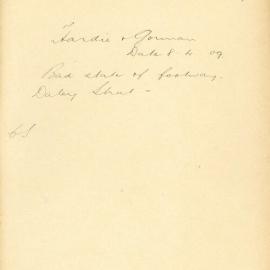 Hardie & Gorman
Date 8 4 09
Bad state of footway.
Daley Street -